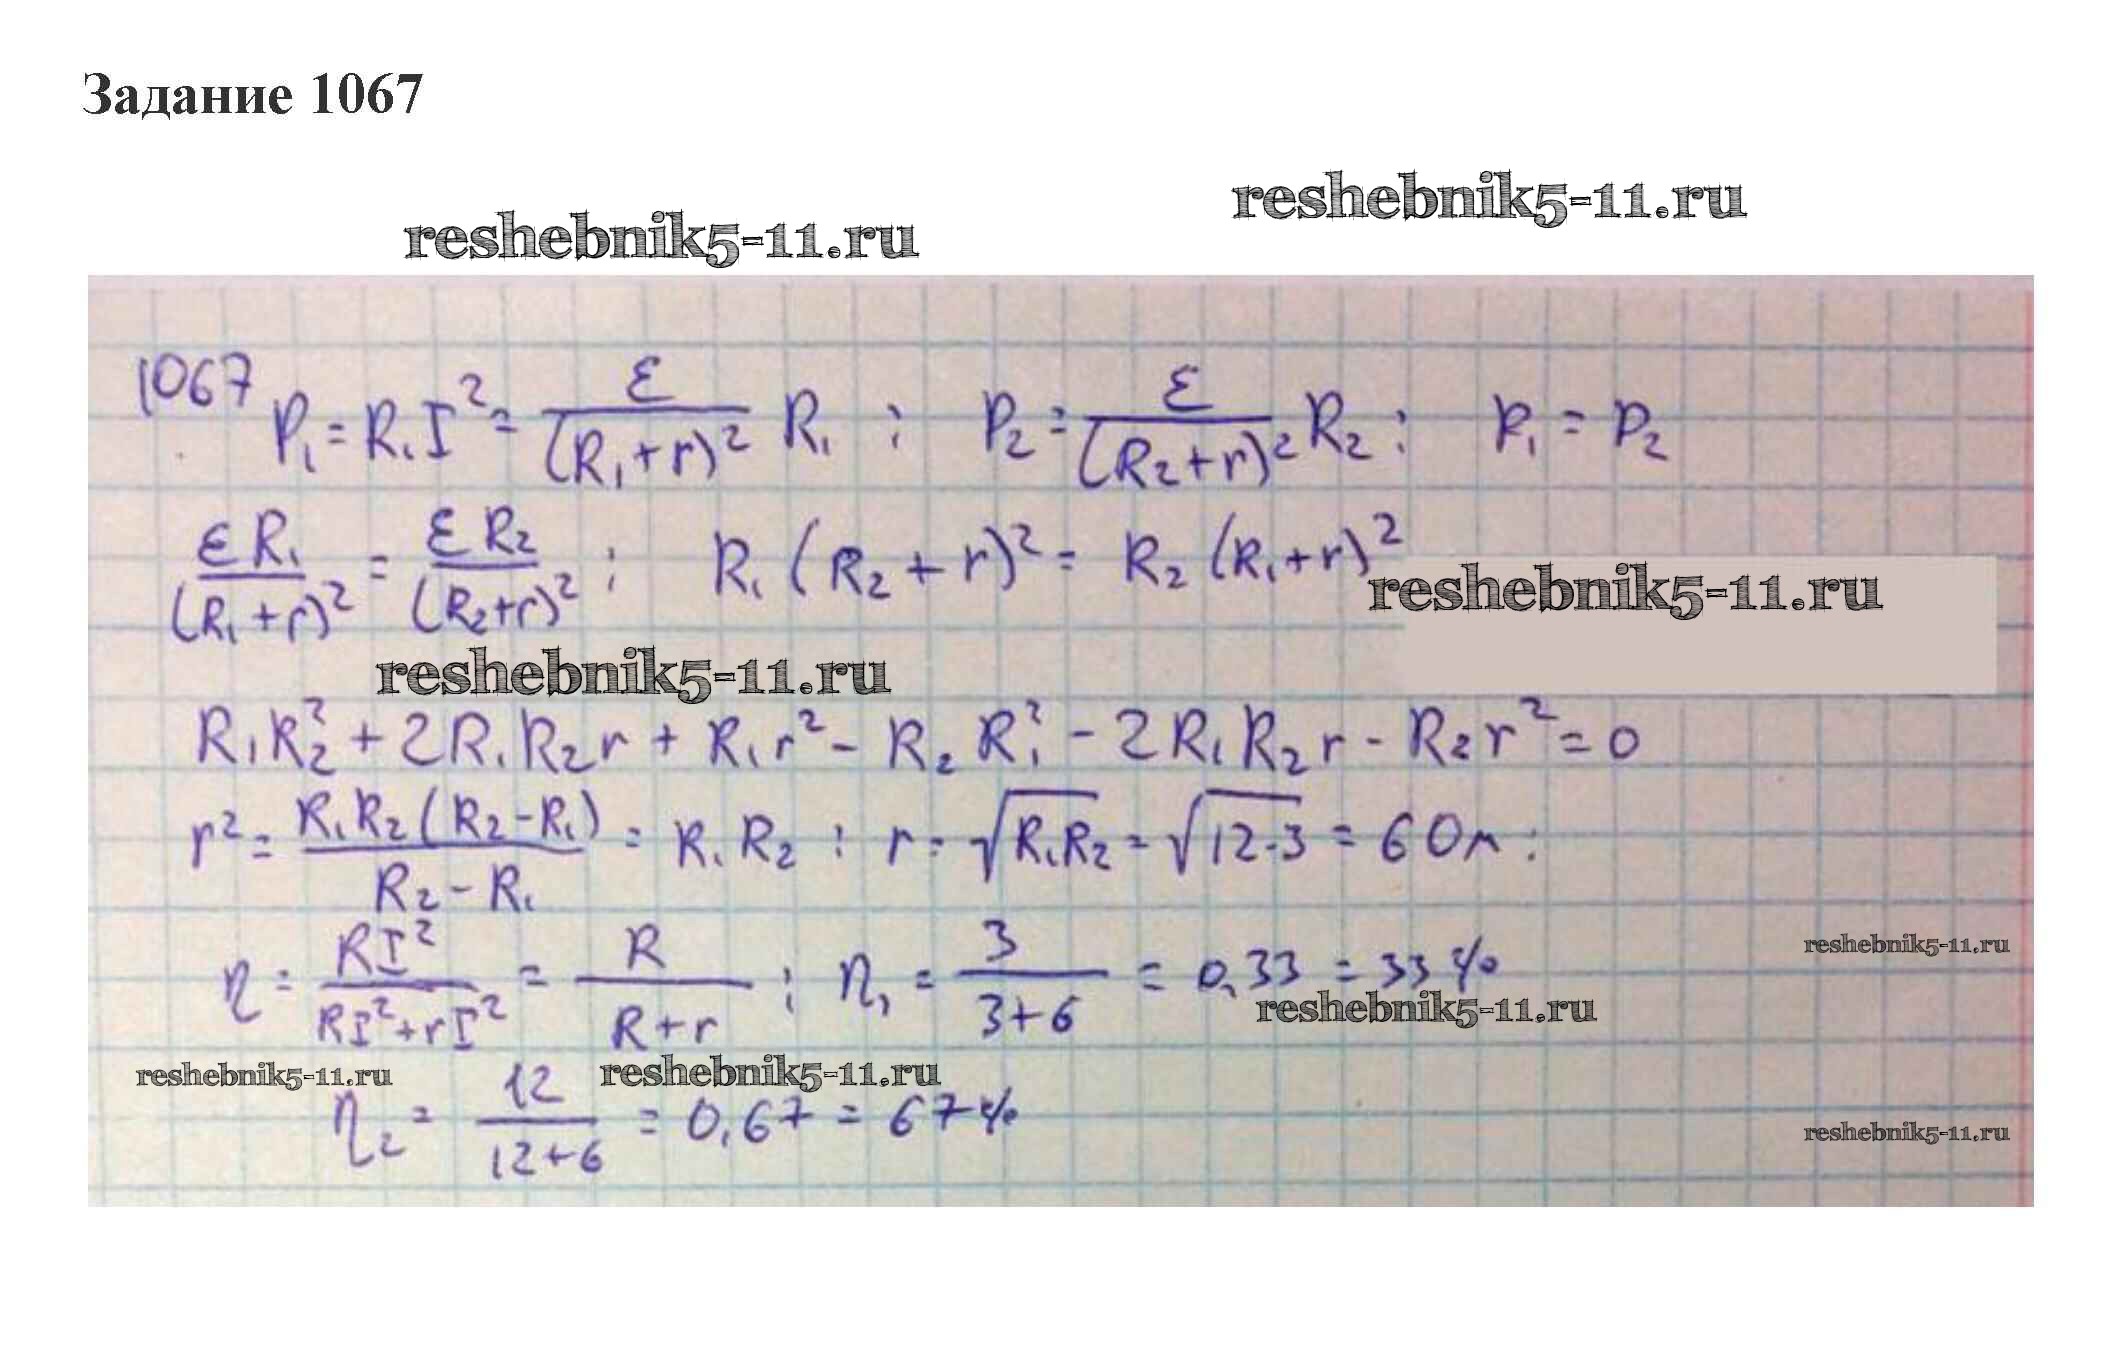 Задание 1067
reshebnik5-11.ru
reshebnik5-11.ru
1067 P₁ = R₁I² = ε/(R₁+r)² R₁ ; P₂ = ε/(R₂+r)² R₂ ; P₁ = P₂
εR₁/(R₁+r)² = εR₂/(R₂+r)² ; R₁(R₂+r)² = R₂(R₁+r)²
reshebnik5-11.ru
reshebnik5-11.ru
R₁R₂² + 2R₁R₂r + R₁r² - R₂R₁² - 2R₁R₂r - R₂r² = 0
r² = R₁R₂(R₂-R₁)/(R₂-R₁) = R₁R₂ ; r = √(R₁R₂) = √(12·3) = 6 Ом ;
reshebnik5-11.ru
η = RI²/(RI²+rI²) = R/(R+r) ; η₁ = 3/(3+6) = 0,33 = 33%
reshebnik5-11.ru
reshebnik5-11.ru
reshebnik5-11.ru
η₂ = 12/(12+6) = 0,67 = 67%
reshebnik5-11.ru